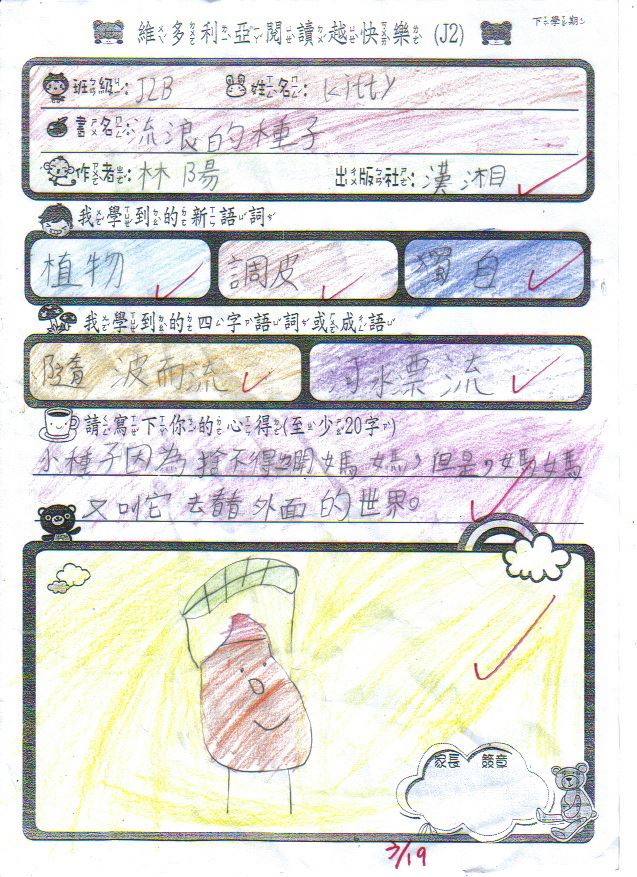 維多利亞閱讀越快樂 (J2) 下學期
班級: J2B 姓名: Kitty
書名: 流浪的種子
作者: 林陽 出版社: 漢湘
我學到的新語詞
植物 調皮 獨自
我學到的四字語詞或成語
隨波而流 河水漂流
請寫下你的心得(至少20字)
小種子因為捨不得離開媽媽,但是,媽媽
又叫它去 外面的世界。
家長 簽章
3/19